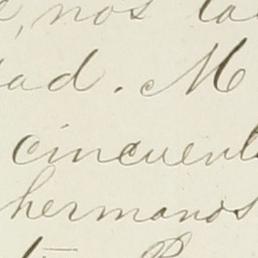 , nos la
ad. M
cincuent
hermanos